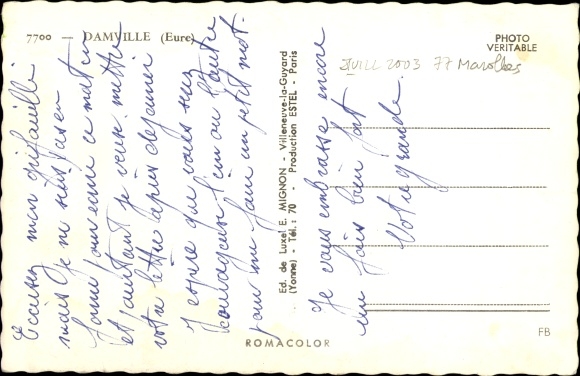 7700 — DAMVILLE (Eure)
PHOTO
VERITABLE
JUILL 2003 77 Marolles
Excusez mon
mais je ne suis pas en
forme pour écrire ce matin
et pourtant je veux mettre
votre lettre après déjeuner
J espère que vous serez
courageuse l'un ou l'autre
pour me faire un petit mot.
Ed. de Luxe E. MIGNON - Villeneuve-la-Guyard
(Yonne) - Tél. : 70 - Production ESTEL - Paris
Je vous embrasse encore
une fois bien fort
Votre grande
ROMACOLOR
FB